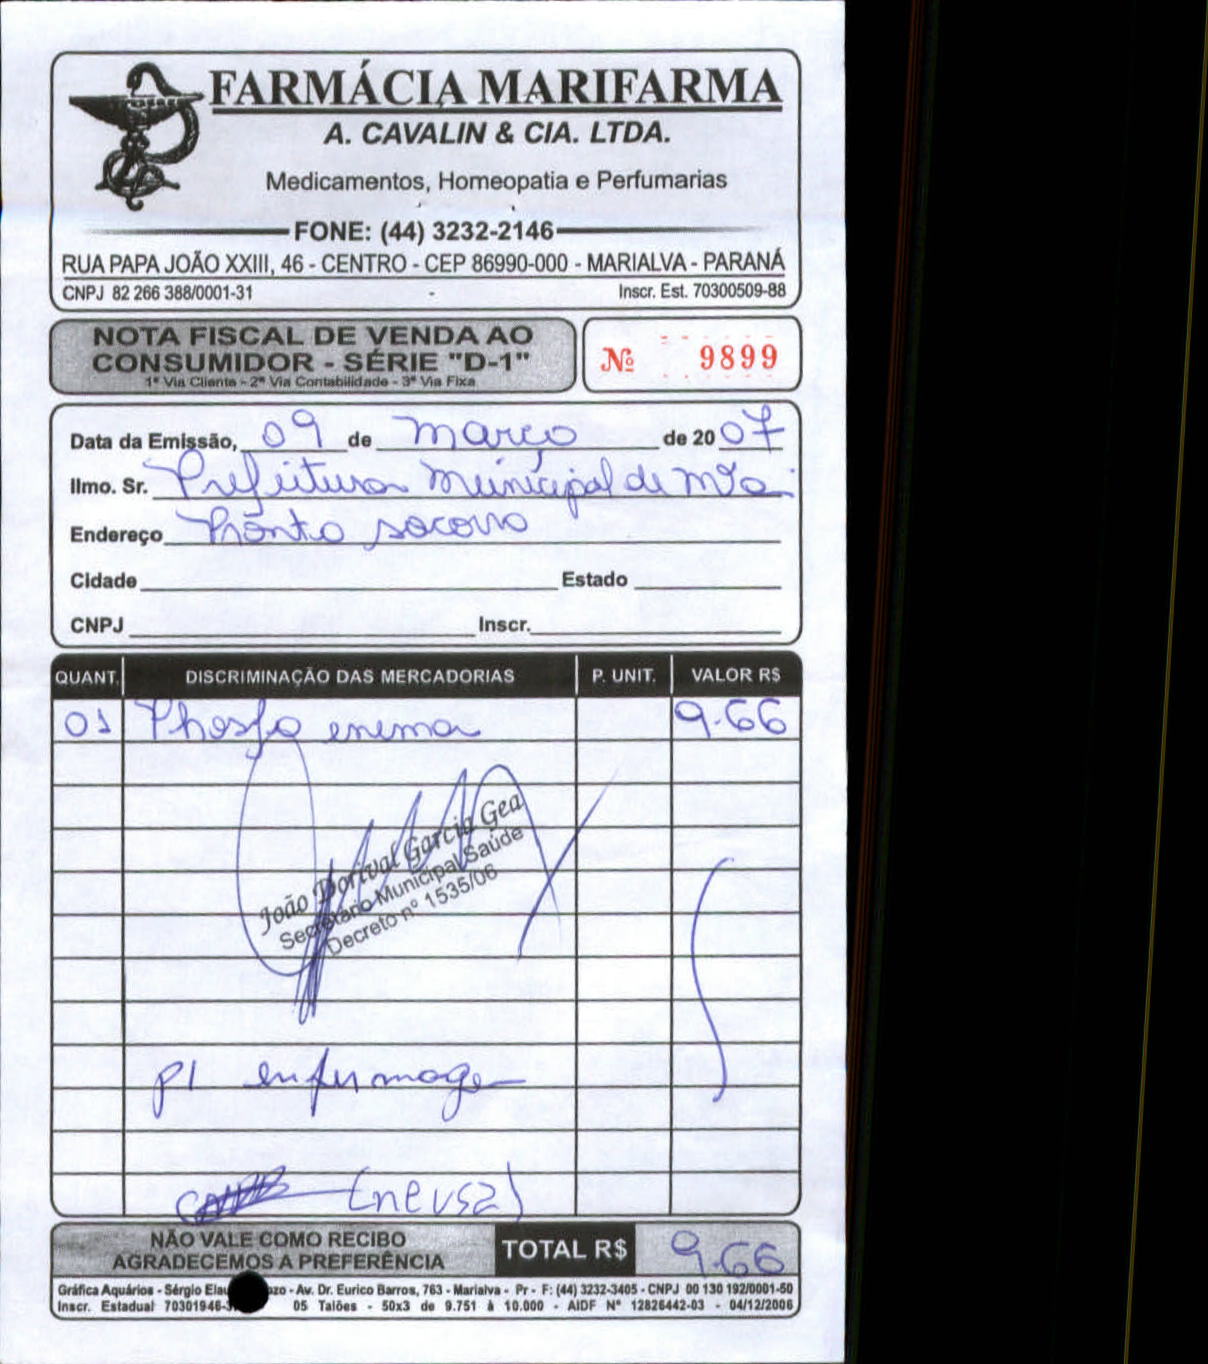 FARMÁCIA MARIFARMA
A. CAVALIN & CIA. LTDA.
Medicamentos, Homeopatia e Perfumarias
FONE: (44) 3232-2146
RUA PAPA JOÃO XXIII, 46 - CENTRO - CEP 86990-000 - MARIALVA - PARANÁ
CNPJ 82 266 388/0001-31 Inscr. Est. 70300509-88
NOTA FISCAL DE VENDA AO
CONSUMIDOR - SÉRIE "D-1"
1ª Via Cliente - 2ª Via Contabilidade - 3ª Via Fixa
Nº 9899
Data da Emissão, 09 de março de 2007
Ilmo. Sr. Prefeitura municipal de mva
Endereço Pronto socorro
Cidade Estado
CNPJ Inscr.
QUANT. DISCRIMINAÇÃO DAS MERCADORIAS P. UNIT. VALOR R$
01 Phosfo enema 9.66
João Dorival Garcia Gea
Secretário Municipal Saúde
Decreto nº 1535/06
p/ enfermagem
(neusa)
NÃO VALE COMO RECIBO
AGRADECEMOS A PREFERÊNCIA
TOTAL R$ 9.66
Gráfica Aquários - Sérgio - Av. Dr. Eurico Barros, 763 - Marialva - Pr - F: (44) 3232-3405 - CNPJ 00 130 192/0001-50
Inscr. Estadual 70301946-3 05 Talões - 50x3 de 9.751 à 10.000 - AIDF Nº 12826442-03 - 04/12/2006